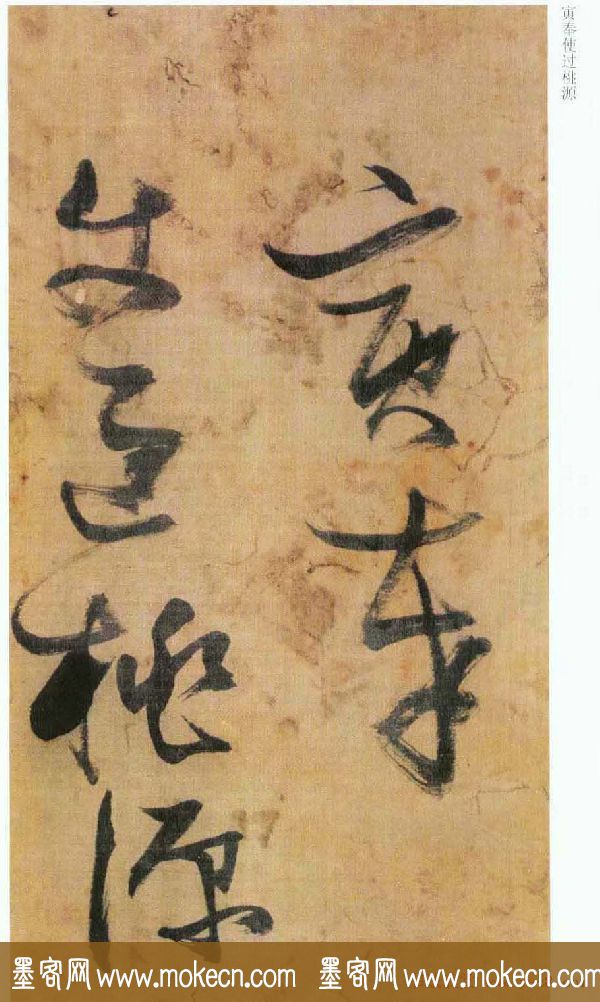 寅奉使过桃源
寅奉
使過桃源
墨客网 www.mokecn.com 墨客网 www.mokecn.com